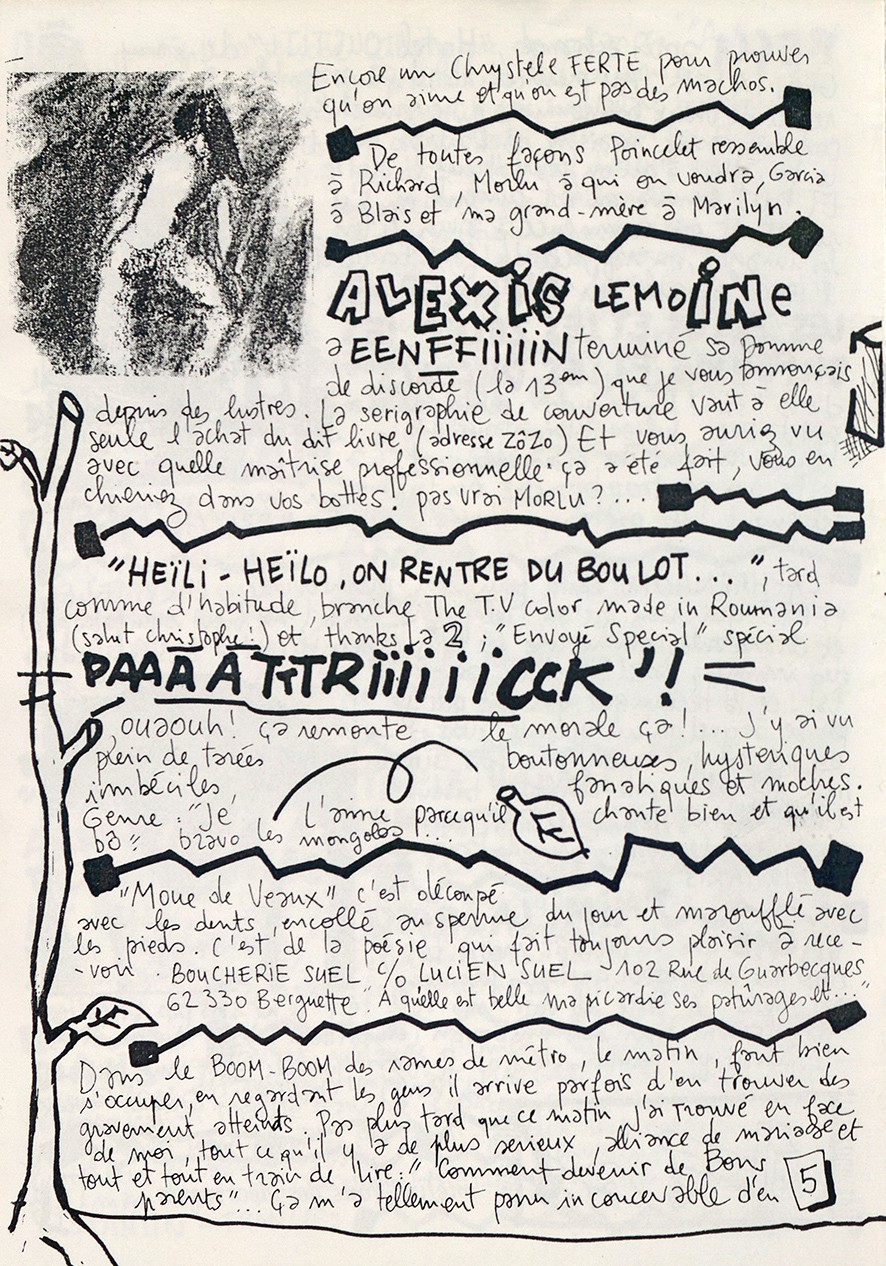 Encore un Chrystèle FERTE pour prouver
qu'on aime et qu'on est pas des machos.
De toutes façons Poincelet ressemble
à Richard, Morlu à qui on voudra, Garcia
à Blais et ma grand-mère à Marilyn.
ALEXIS LEMOINe
a EENFFiiiiiN terminé sa pomme
de discorde (la 13em) que je vous annonçais
depuis des lustres. La serigraphie de couverture vaut à elle
seule l'achat du dit livre (adresse ZôZo) Et vous auriez vu
avec quelle maîtrise professionnelle ça a été fait, vous en
chieriez dans vos bottes! pas vrai MORLU?...
"HEïLi-HEïLO, ON RENTRE DU BOULOT...", tard
comme d'habitude, branche The T.V color made in Roumania
(salut christophe!) et thanks La 2; "Envoyé Special" spécial
PAAÂÂTTTRiiiiiiiCCK'! =
ouaouh! ça remonte le morale ça!... J'y ai vu
plein de tarées boutonneuses, hysteriques
imbéciles, fanatiques et moches.
Genre: "Je L'aime parcequ'il chante bien et qu'il est
bô" bravo les mongoles...
"Moue de Veaux" c'est découpé
avec les dents, encollé au sperme du jour et marouflé avec
les pieds. C'est de la poésie qui fait toujours plaisir à rece-
-voir. BOUCHERIE SUEL c/o LUCiEN SUEL - 102 Rue de Guarbecques
62330 Berguette. "A qu'elle est belle ma picardie ses patûrages et..."
Dans le BOOM-BOOM des rames de métro, le matin, faut bien
s'occuper, en regardant les gens il arrive parfois d'en trouver des
gravement atteints. Pas plus tard que ce matin j'ai TROUVÉ en face
de moi, tout ce qu'il y a de plus serieux, alliance de mariage et
tout et tout en train de lire: "Comment devenir de Bons
parents"... Ça m'a tellement paru inconcevable d'en
5